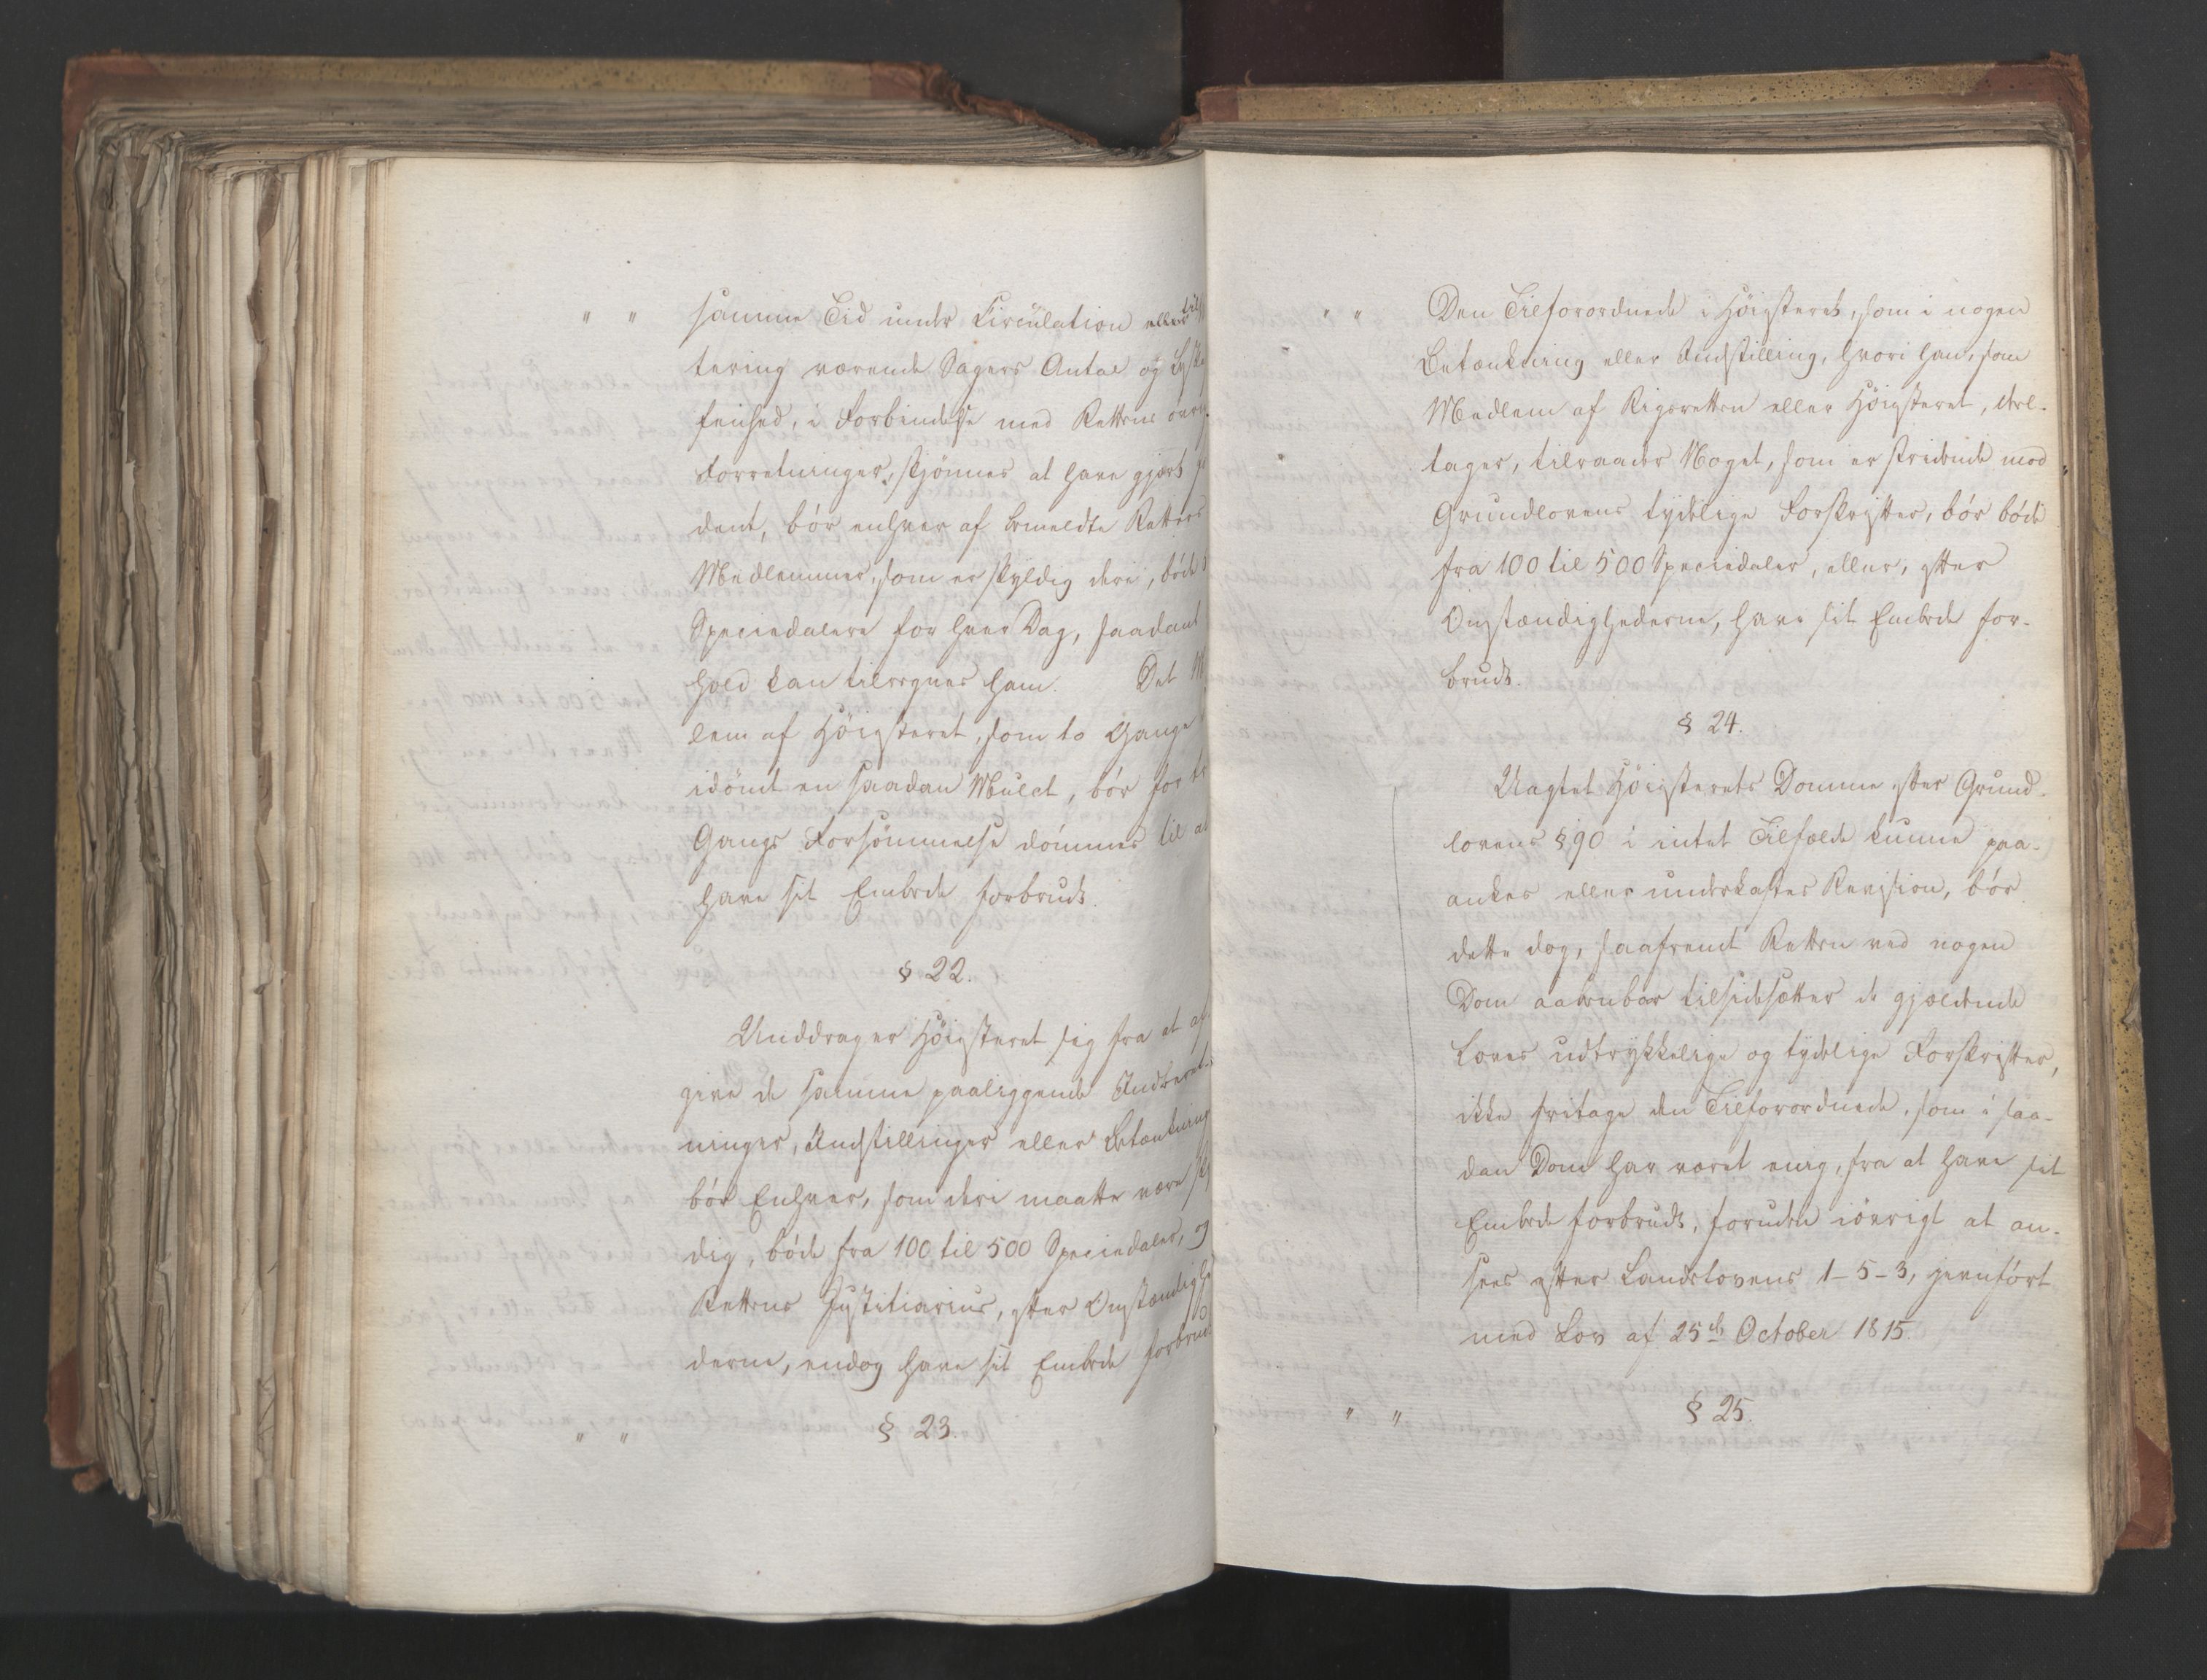 " " samme Tid under Circulation eller
tering værende Sagers Antal og
fenhed, i Forbindelse med Rettens
Forretninger, skjønnes at have gjørts
dent, bör enhver af bemeldte Retters
Medlemmer, som er skyldig deri, böde
Speciedalere for hver Dag, saadant
hold kan tilregnes ham. Det
lem af Höiesteret, som to Gange
idömt en saadan Mulct, bör for
Gangs Forsömmelse dömmes til at
have sit Embede forbrudt.
§ 22.
Unddrager Höiesteret sig fra at af-
give de samme paaliggende Indberet-
ninger, Indstillinger eller Betænkning
bör Enhver, som deri maatte være
dig, böde fra 100 til 500 Speciedaler, og
Rettens Justitiarius, efter Omstændighe
derne, endog have sit Embede forbrudt
" " § 23.
" " Den Tilforordnede i Höiesteret, som i nogen
Betænkning eller Indstilling, hvori han, som
Medlem af Rigsretten eller Höiesteret, del-
tager, tilraader Noget, som er stridende mod
Grundlovens tydelige Forskrifter, bör böde
fra 100 til 500 Speciedaler, eller, efter
Omstændighederne, have sit Embede for-
brudt.
§ 24.
Uagtet Höiesterets Domme efter Grund-
lovens § 90 i intet Tilfælde kunne paa-
ankes eller underkastes Revision, bör
dette dog, saafremt Retten ved nogen
Dom aabenbar tilsidesætter de gjældende
Loves udtrykkelige og tydelige Forskrifter,
ikke fritage den Tilforordnede, som i saa-
dan Dom har været enig, fra at have sit
Embede forbrudt, foruden iövrigt at an-
sees efter Landslovens 1-5-3, jevnfört
med Lov af 25de October 1815.
" " § 25.